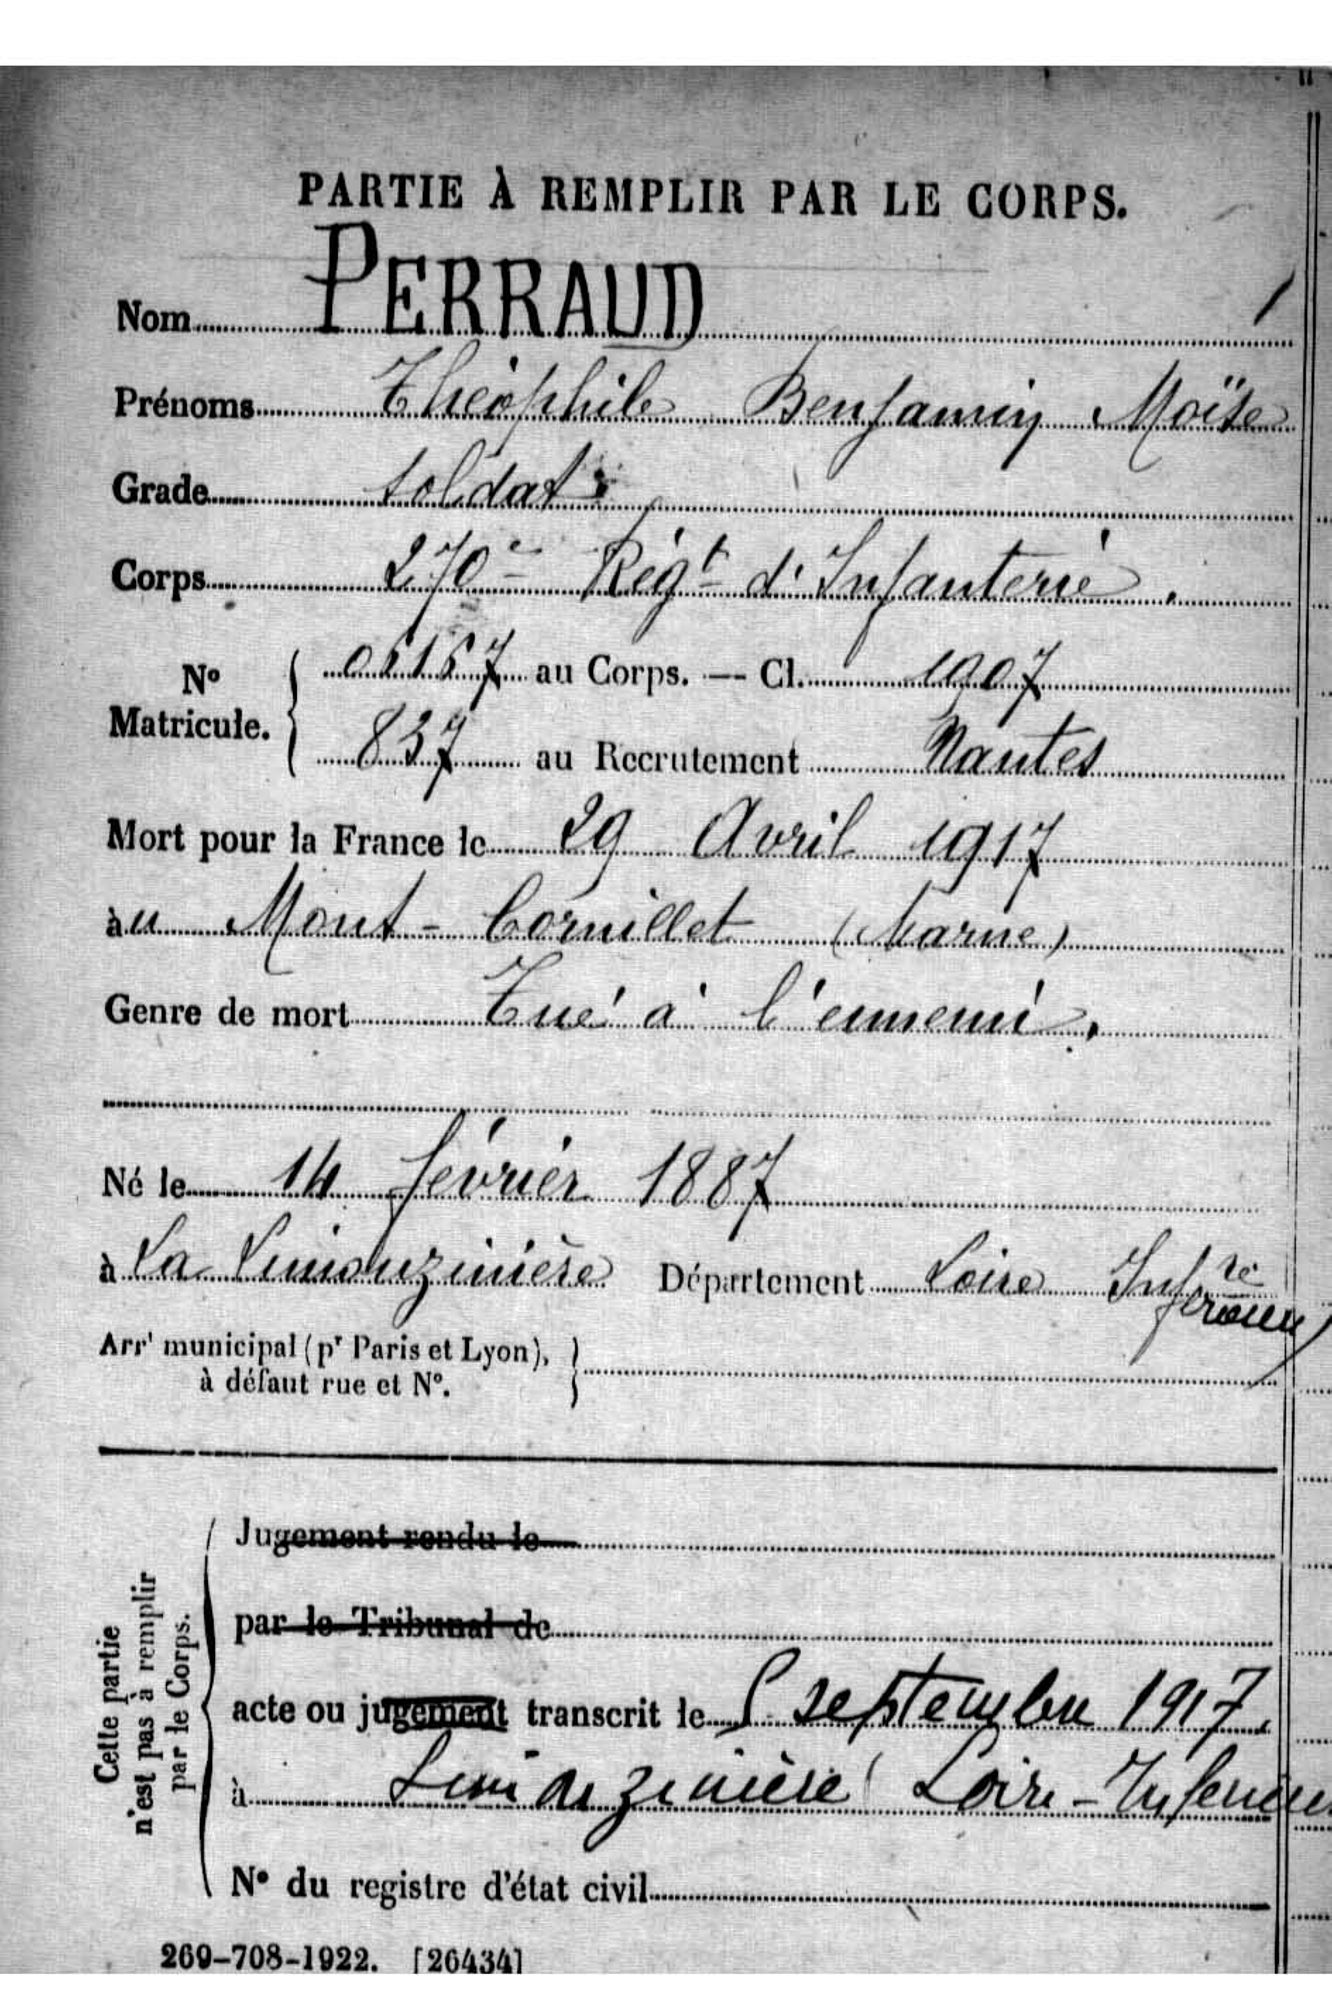 PARTIE À REMPLIR PAR LE CORPS.
Nom PERRAUD
Prénoms Théophile Benjamin Moïse
Grade soldat
Corps 270e Régt d'Infanterie.
No Matricule. { 06167 au Corps. — Cl. 1907
837 au Recrutement Nantes
Mort pour la France le 29 Avril 1917
àu Mont-Cornillet (Marne)
Genre de mort Tué à l'ennemi.
Né le 14 février 1887
à La Limouzinière Département Loire Inférieure
Arrt municipal (pr Paris et Lyon),
à défaut rue et No.
Cette partie
n'est pas à remplir
par le Corps.
Jugement rendu le
par le Tribunal de
acte ou jugement transcrit le 5 septembre 1917.
à Limouzinière Loire-Inférieure
No du registre d'état civil
269-708-1922. [26434]